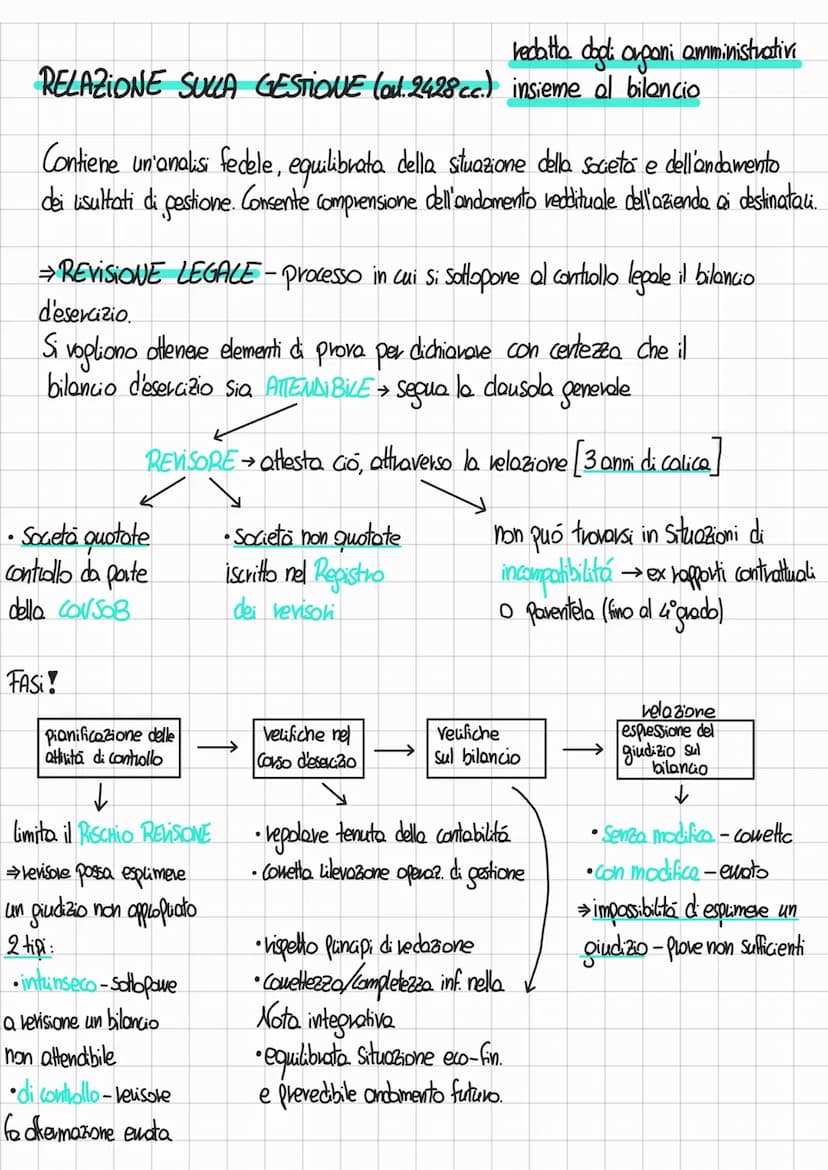 redatta dagli organi amministrativi
RELAZIONE SULLA GESTIONE (art. 2428 c.c.) insieme al bilancio
Contiene un'analisi fedele, equilibrata della situazione della società e dell'andamento
dei risultati di gestione. Consente comprensione dell'andamento reddituale dell'azienda ai destinatari.
⇒ REVISIONE LEGALE - processo in cui si sottopone al controllo legale il bilancio
d'esercizio.
Si vogliono ottenere elementi di prova per dichiarare con certezza che il
bilancio d'esercizio sia ATTENDIBILE → segua la clausola generale
REVISORE → attesta ció, attraverso la relazione [3 anni di carica]
• Società quotate
controllo da parte
della CONSOB
• Società non quotate
iscritto nel Registro
dei revisori
non puó trovarsi in situazioni di
incompatibilitá → ex rapporti contrattuali
o parentela (fino al 4° grado)
FASI!
pianificazione delle
attivitá di controllo
→
verifiche nel
corso d'esercizio
→
verifiche
sul bilancio
→
relazione
espressione del
giudizio sul
bilancio
limita il RISCHIO REVISIONE
⇒ revisore possa esprimere
un giudizio non appropriato
2 tipi:
• intrinseco - sottoporre
a revisione un bilancio
non attendibile
• di controllo - revisore
fa affermazione errata
• regolare tenuta della contabilitá
• corretta rilevazione operaz. di gestione
• rispetto principi di redazione
• correttezza/completezza inf. nella
Nota integrativa
• equilibrata situazione eco-fin.
e prevedibile andamento futuro.
• senza modifica - corretto
• con modifica - errato
⇒ impossibilitá d'esprimere un
giudizio - prove non sufficienti